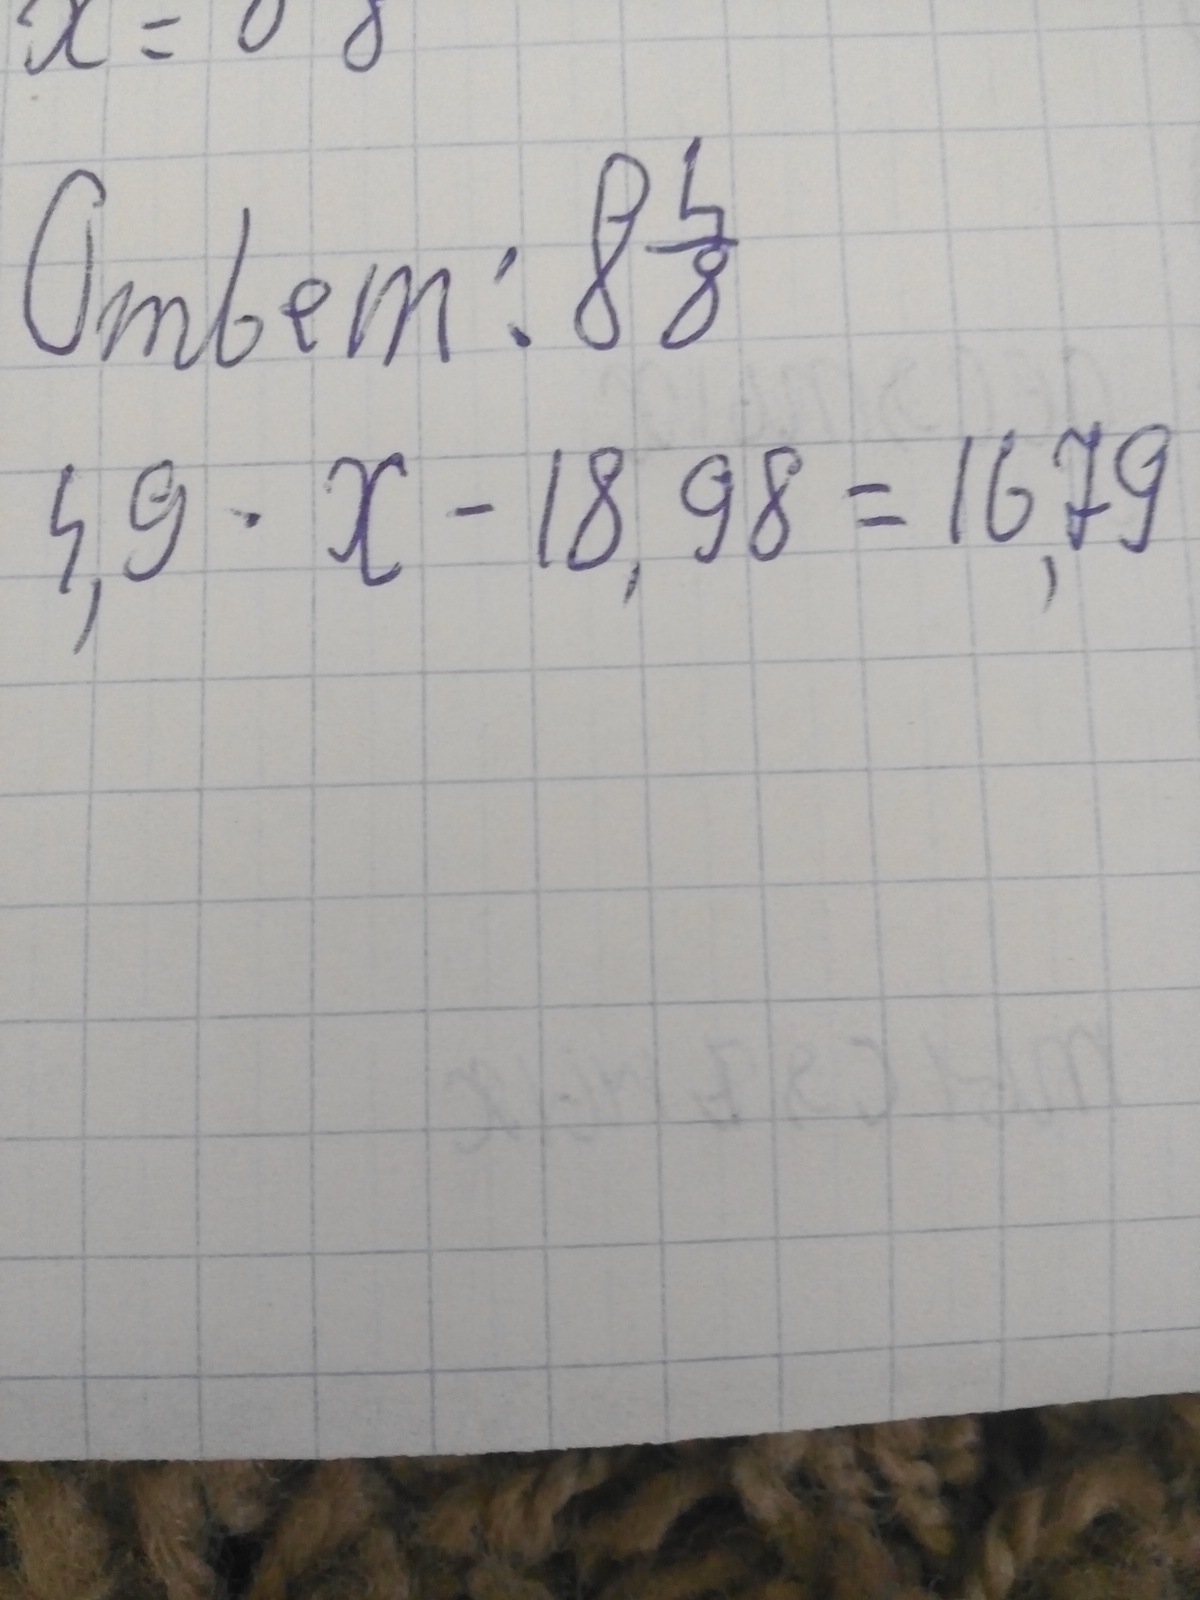 x =
Ответ: 8 4/8
4,9 · x - 18,98 = 16,79